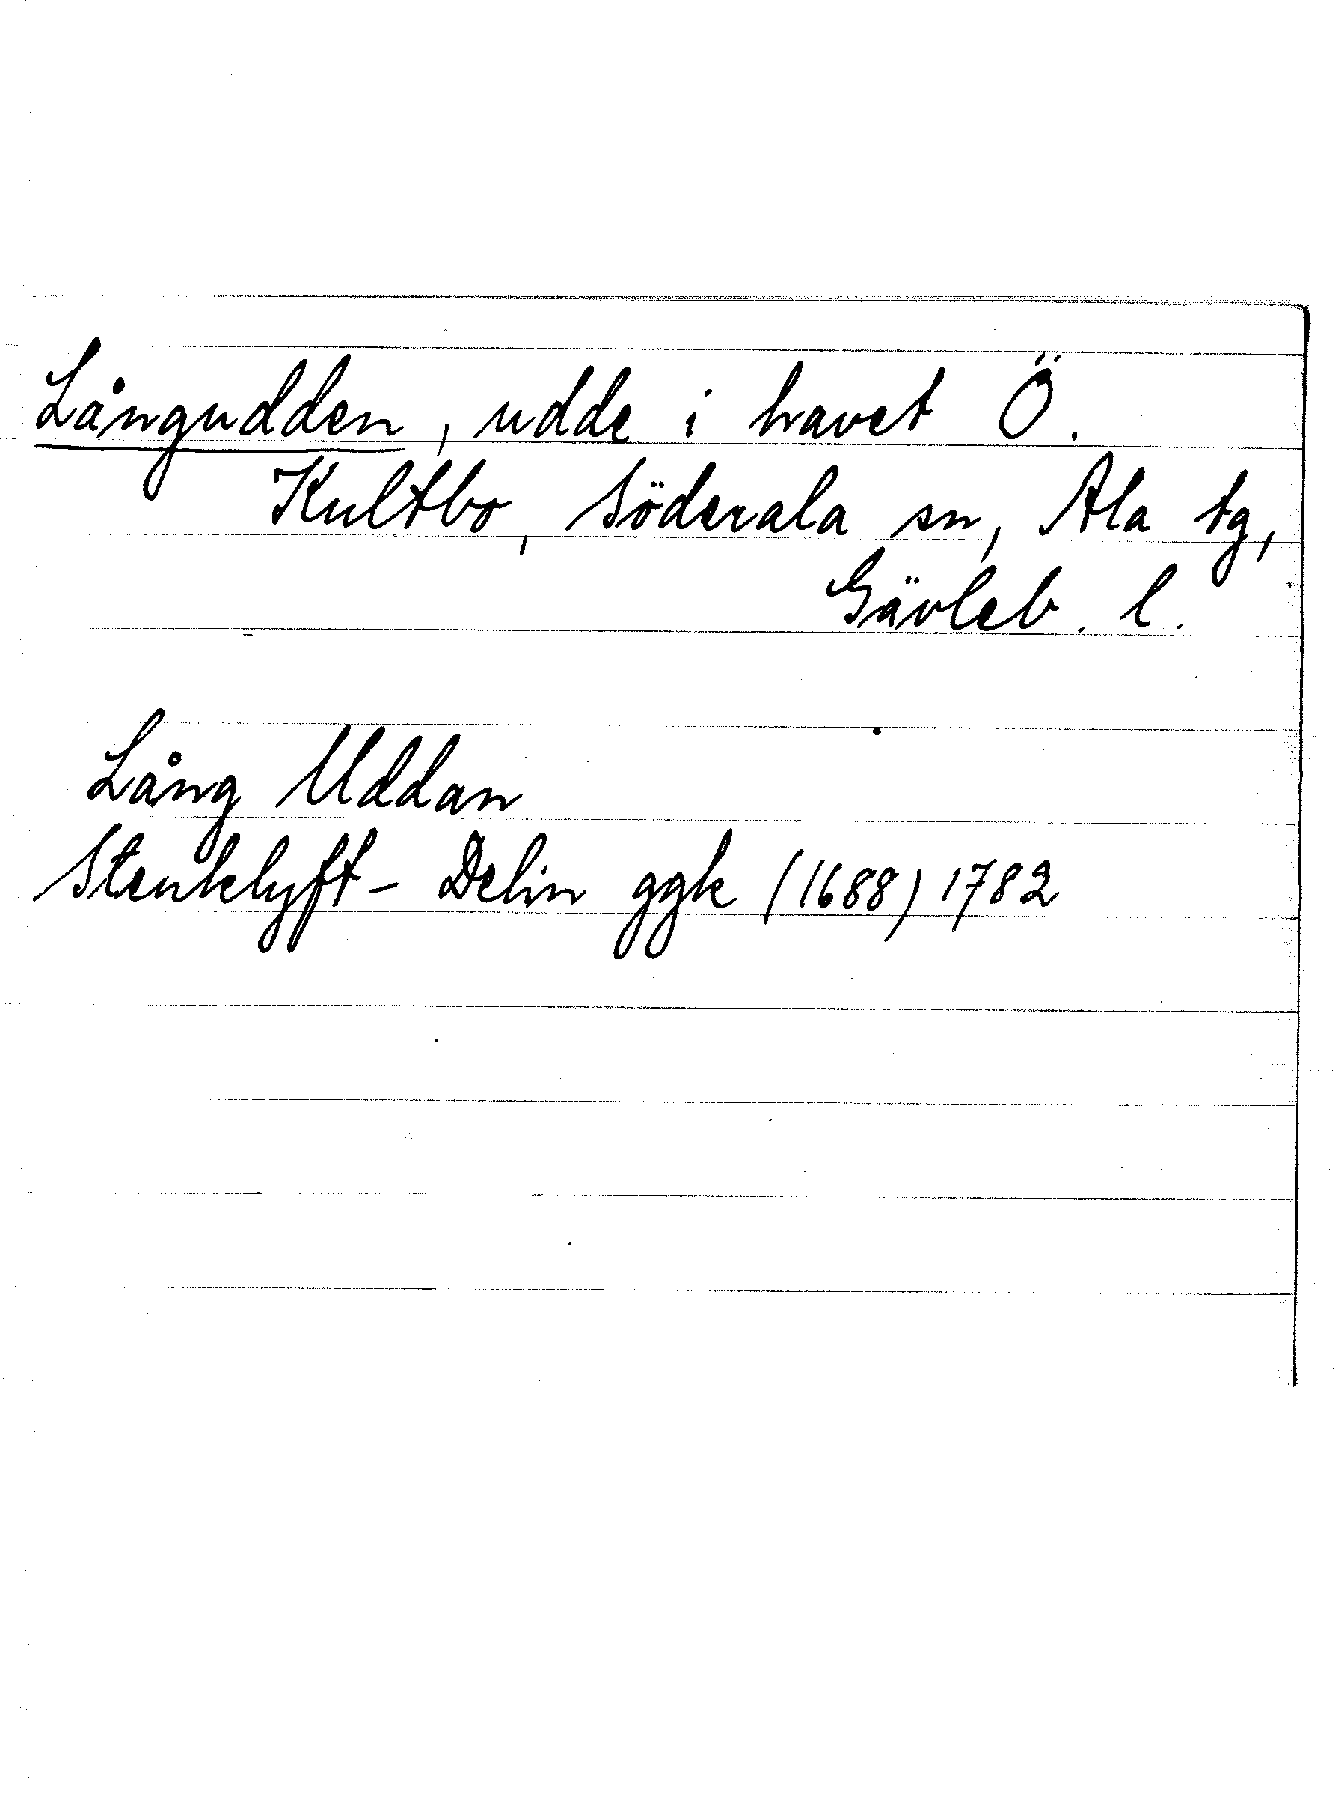 Långudden, udde i havet Ö.
Kultbo, Söderala sn, Ala tg,
Gävleb. l.
Lång Uddan
Stenklyft- Delin ggk (1688) 1782